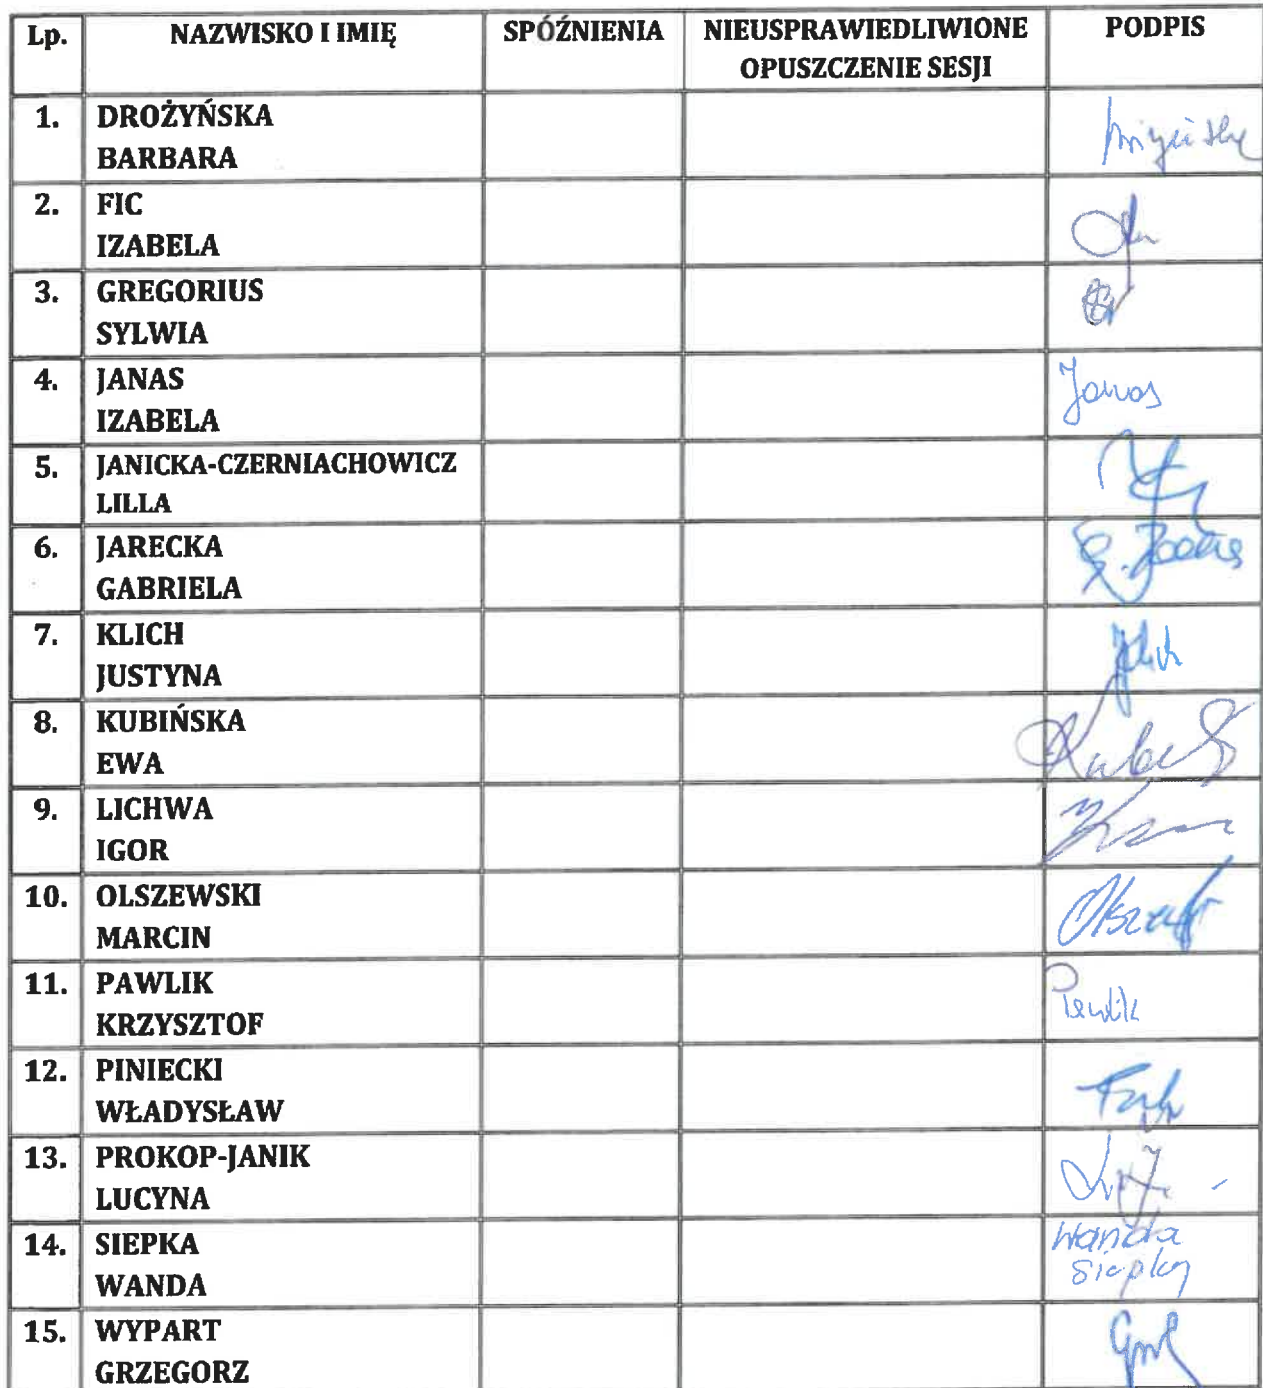 Lp. NAZWISKO I IMIĘ SPÓŹNIENIA NIEUSPRAWIEDLIWIONE OPUSZCZENIE SESJI PODPIS
1. DROŻYŃSKA
BARBARA
2. FIC
IZABELA
3. GREGORIUS
SYLWIA
4. JANAS Janas
IZABELA
5. JANICKA-CZERNIACHOWICZ
LILLA
6. JARECKA
GABRIELA
7. KLICH
JUSTYNA
8. KUBIŃSKA
EWA
9. LICHWA
IGOR
10. OLSZEWSKI
MARCIN
11. PAWLIK Pawlik
KRZYSZTOF
12. PINIECKI
WŁADYSŁAW
13. PROKOP-JANIK
LUCYNA
14. SIEPKA Wanda
WANDA Siepka
15. WYPART
GRZEGORZ